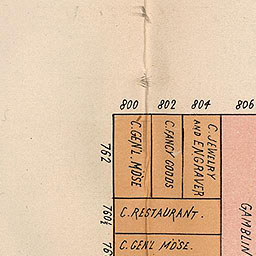 800 802 804 806
762
C. GEN'L. MDSE.
C. FANCY GOODS
C. JEWELRY
AND ENGRAVER
760½
C. RESTAURANT.
C. GEN'L MDSE.